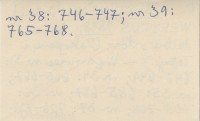 nr 38: 746-747; nr 39:
765-768.